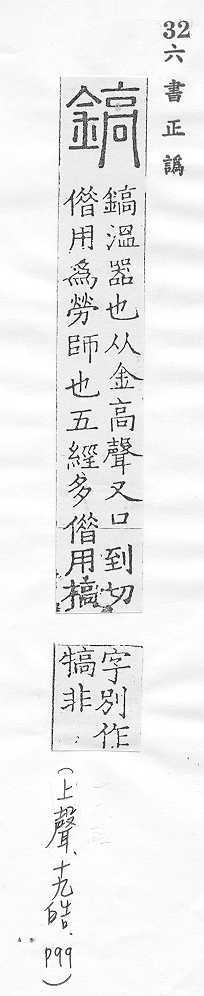 32
六書正譌
鎬
鎬溫器也从金高聲又口到切
借用爲勞師也五經多借用槁
字別作
犒非
(上聲、十九皓、P99)